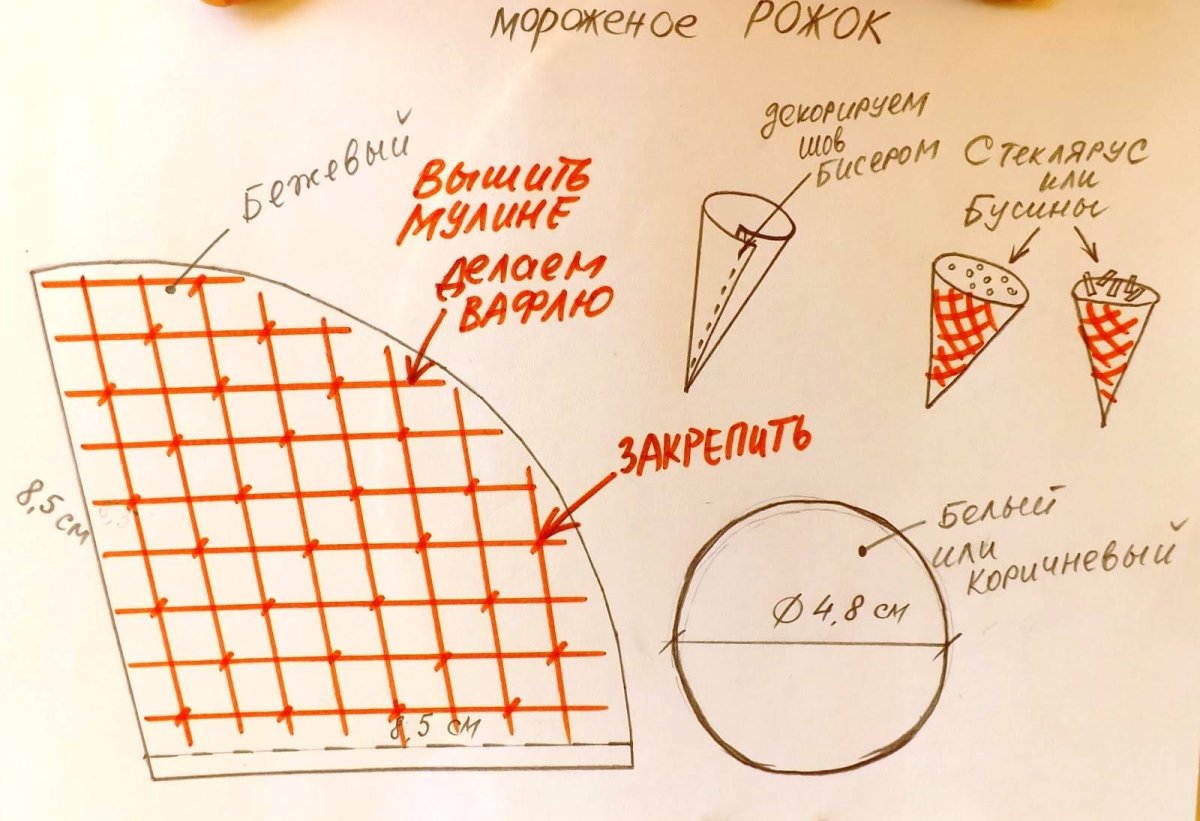 мороженое РОЖОК
Бежевый
ВЫШИТЬ
МУЛИНЕ
делаем
ВАФЛЮ
декорируем
шов
БИСЕРОМ
Стеклярус
или
Бусины
ЗАКРЕПИТЬ
8,5 см
8,5 см
Белый
или
коричневый
Ø 4,8 см